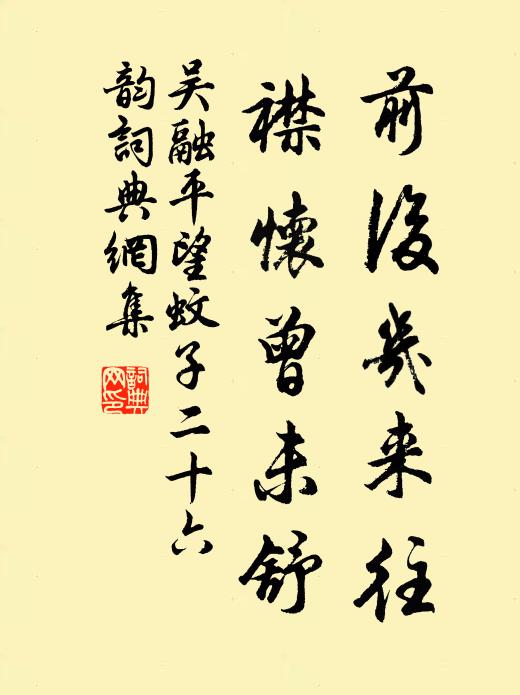 前後幾来往
襟懷曾未舒
吴融平望蚊子二十六
韵詞典網集
詞典網印